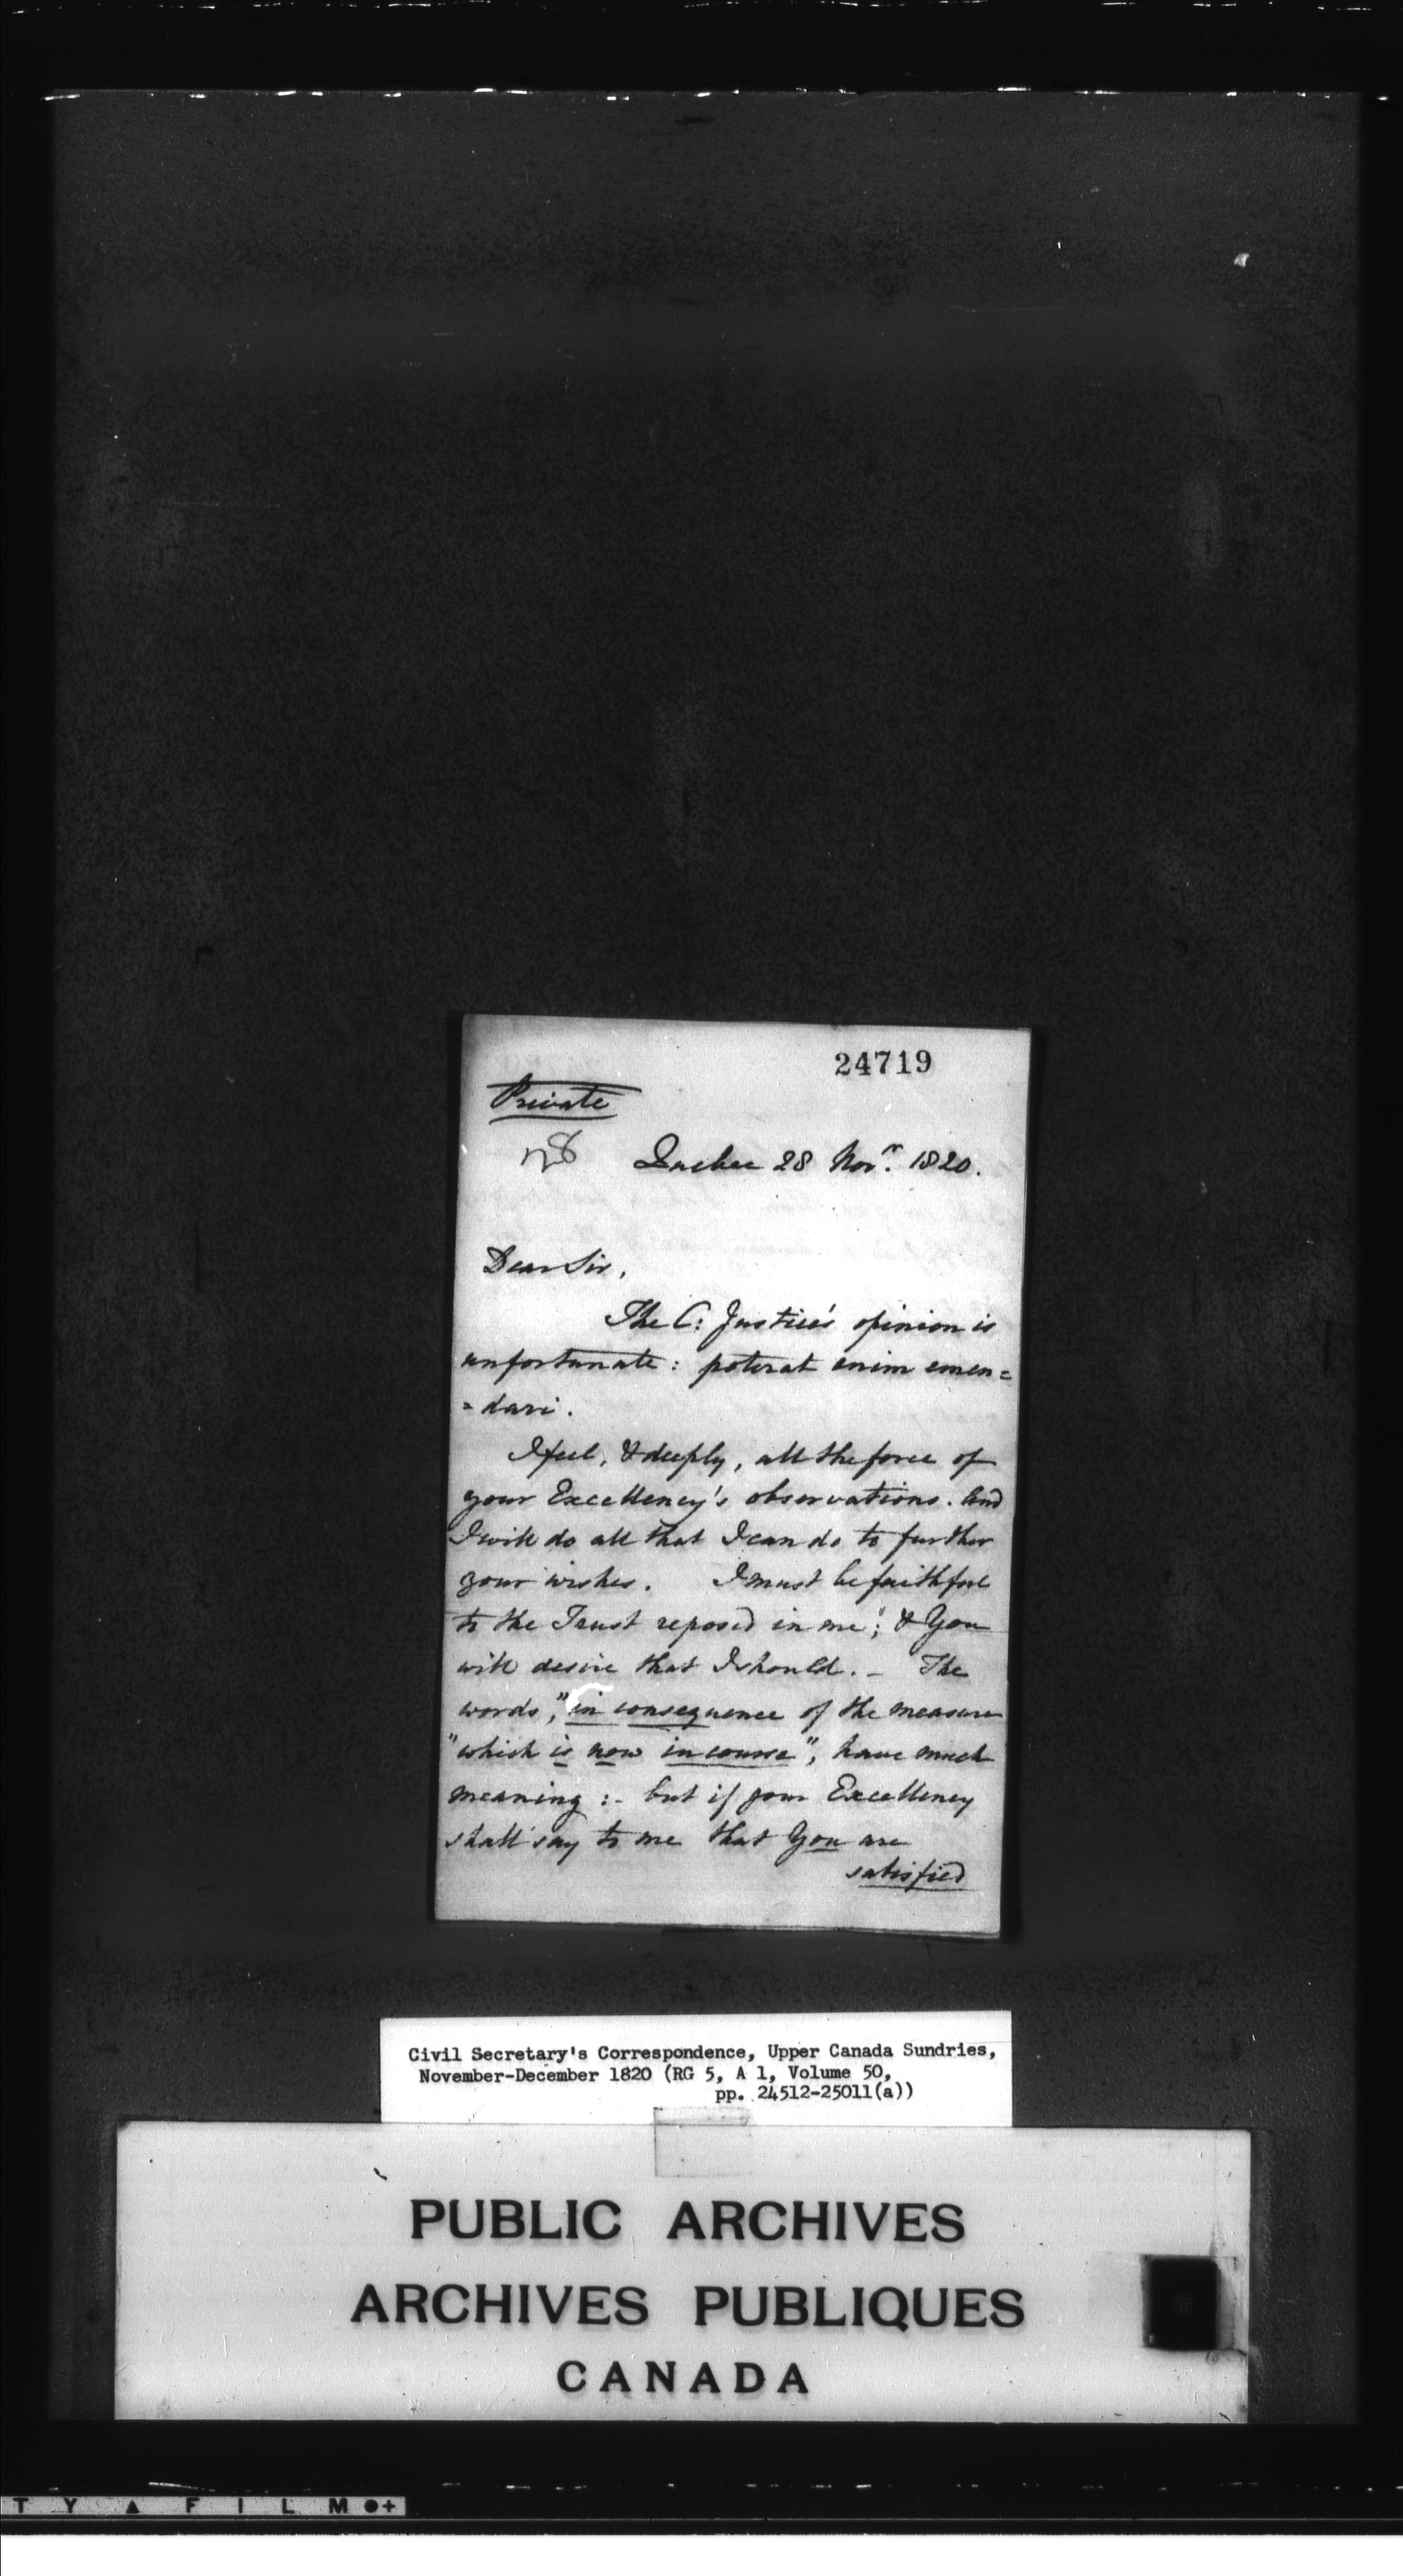 24719
Private
28
Quebec 28 Novr. 1820.
Dear Sir,
The C: Justice's opinion is
unfortunate: poterat enim emen=
=dari.
I feel, & deeply, all the force of
your Excellency's observations. And
I will do all that I can do to further
your wishes. I must be faithful
to the Trust reposed in me; & You
will desire that I should. - The
words, "in consequence of the measure
"which is now in course", have much
meaning :- but if your Excellency
shall say to me that You are
satisfied
Civil Secretary's Correspondence, Upper Canada Sundries,
November-December 1820 (RG 5, A 1, Volume 50,
pp. 24512-25011(a))
PUBLIC ARCHIVES
ARCHIVES PUBLIQUES
CANADA
T Y ▲ F I L M ●+